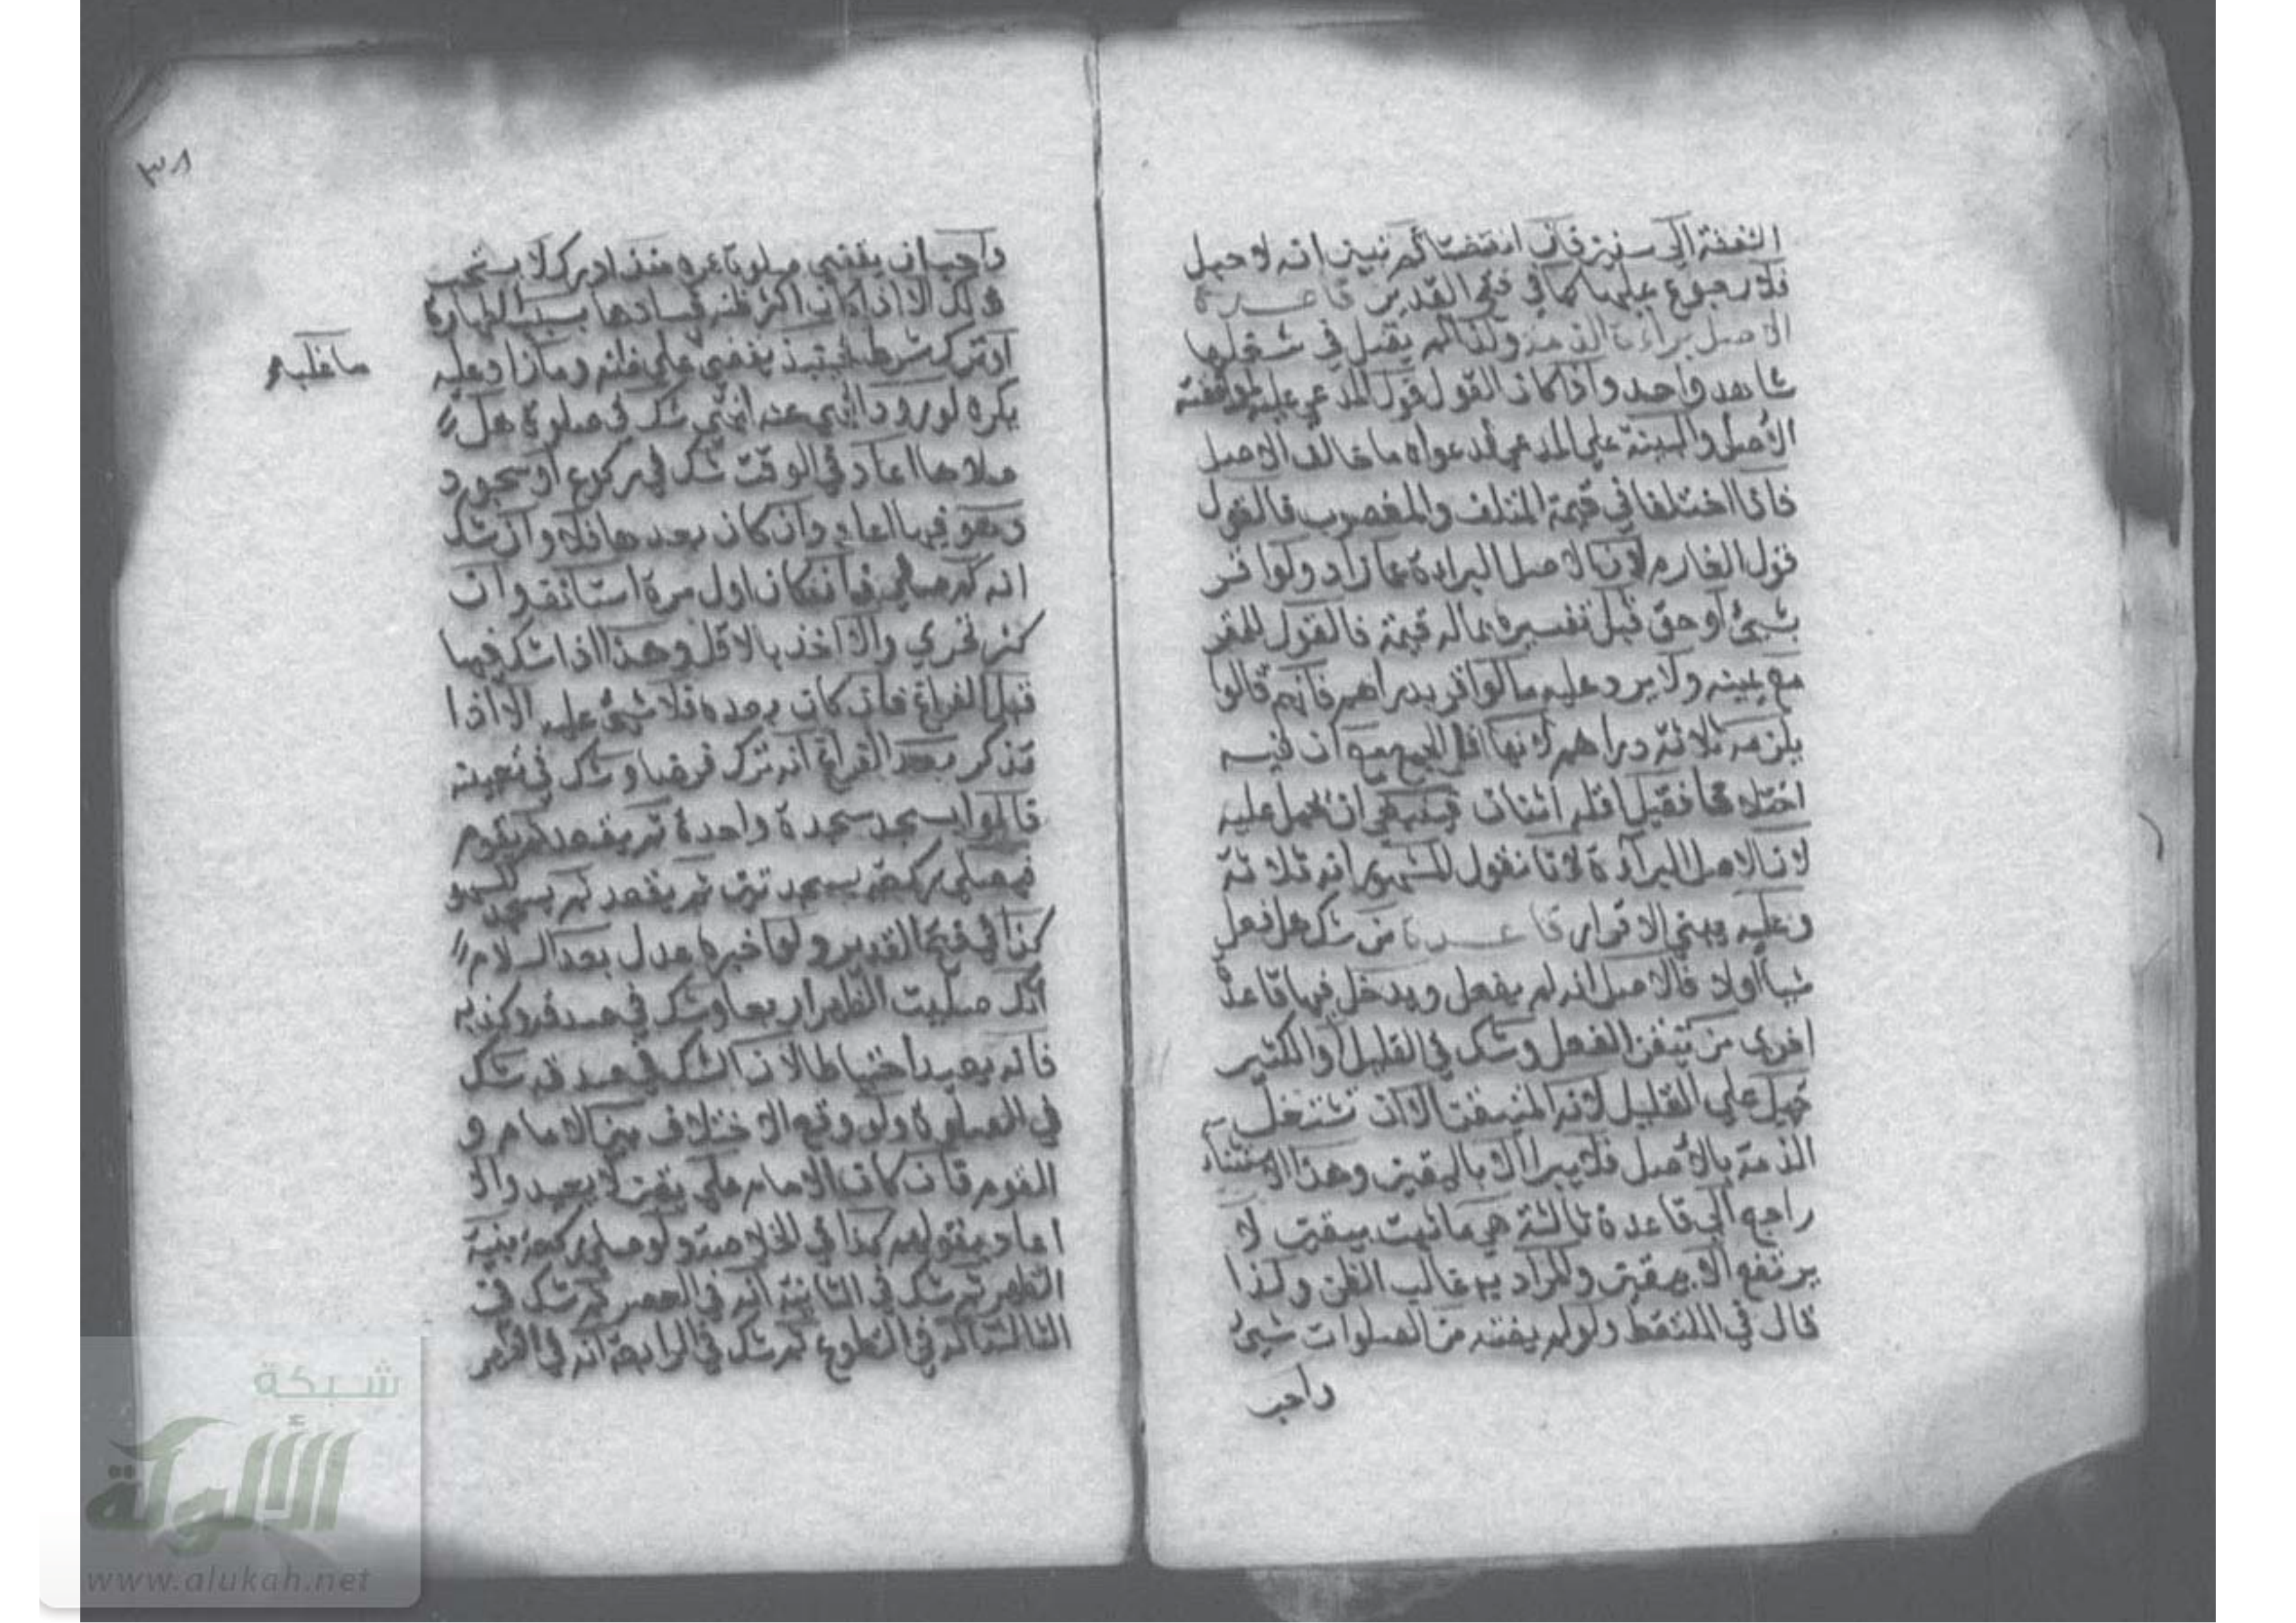 النفقة الي سنين فان انقضت ثم تبين ان لا حبل
فلا رجوع عليها كما في فتح القدير قاعدة
الاصل براءة الذمة ولذا لم يقبل في شغلها
شاهد واحد واذا كان القول قول المدعي عليه لموافقته
الاصل والبينة علي المدعي لدعواه ما خالف الاصل
فاذا اختلفا في قيمة المتلف والمغصوب فالقول
قول الغارم لان الاصل البراءة عما زاد ولو اقر
بشيئ او حق قبل تفسيره بماله قيمة فالقول للمقر
مع يمينه ولا يرد عليه ما لو اقر بدراهم فانهم قالوا
يلزمه ثلاثة دراهم لانها اقل الجمع مع ان فيه
اختلافا فقيل اقله اثنان فينبغي ان يحمل عليه
لان الاصل البراءة لانا نقول المشهور انه ثلاثة
وعليه يبني الاقرار قاعدة من شك هل فعل
شيأ اولا فالاصل انه لم يفعل ويدخل فيها قاعدة
اخري من تيقن الفعل وشك في القليل والكثير
حمل علي القليل لانه المتيقن الا ان تشتغل
الذمة بالاصل فلا يبرا الا باليقين وهذا الاستثناء
راجع الي قاعدة ثالثة هي ما ثبت بيقين لا
يرتفع الا بيقين والمراد به غالب الظن ولذا
قال في الملتقط ولو لم يفته من الصلوات شيئ
واحب
٣٨
واحب ان يقضي صلوة عمره منذ ادرك لا يستحب
ذلك الا اذا كان اكثر ظنه فسادها بسبب الطهارة
او ترك شرط فحينئذ يقضي ما غلب علي ظنه وما زاد عليه
ما غلب
يكره لورود النهي عنه انتهي شك في صلوة هل
صلاها اعاد في الوقت شك في ركوع او سجود
وهو فيها اعاد وان كان بعدها فلا وان شك
انه كم صلي فان كان اول مرة استانف وان
كثر تحري والا اخذ بالاقل وهذا اذا شك فيها
قبل الفراغ فان كان بعده فلا شيئ عليه الا اذا
تذكر بعد الفراغ انه ترك فرضا وشك في تعيينه
قالوا يسجد سجدة واحدة ثم يقعد ثم يقوم
فيصلي ركعة بسجدتين ثم يقعد ثم يسجد للسهو
كذا في فتح القدير ولو اخبره عدل بعد السلام
انك صليت الظهر اربعا وشك في صدقه وكذبه
فانه يعيد احتياطا لان الشك في صدقه شك
في الصلوة ولو وقع الاختلاف بين الامام و
القوم فان كان الامام علي يقين لا يعيد والا
اعاد بقولهم كذا في الخلاصة ولو صلي ركعة بنية
الظهر ثم شك في الثانية انه في العصر ثم شك في
الثالثة انه في التطوع ثم شك في الرابعة انه في الظهر
شبكة
الألوكة
www.alukah.net